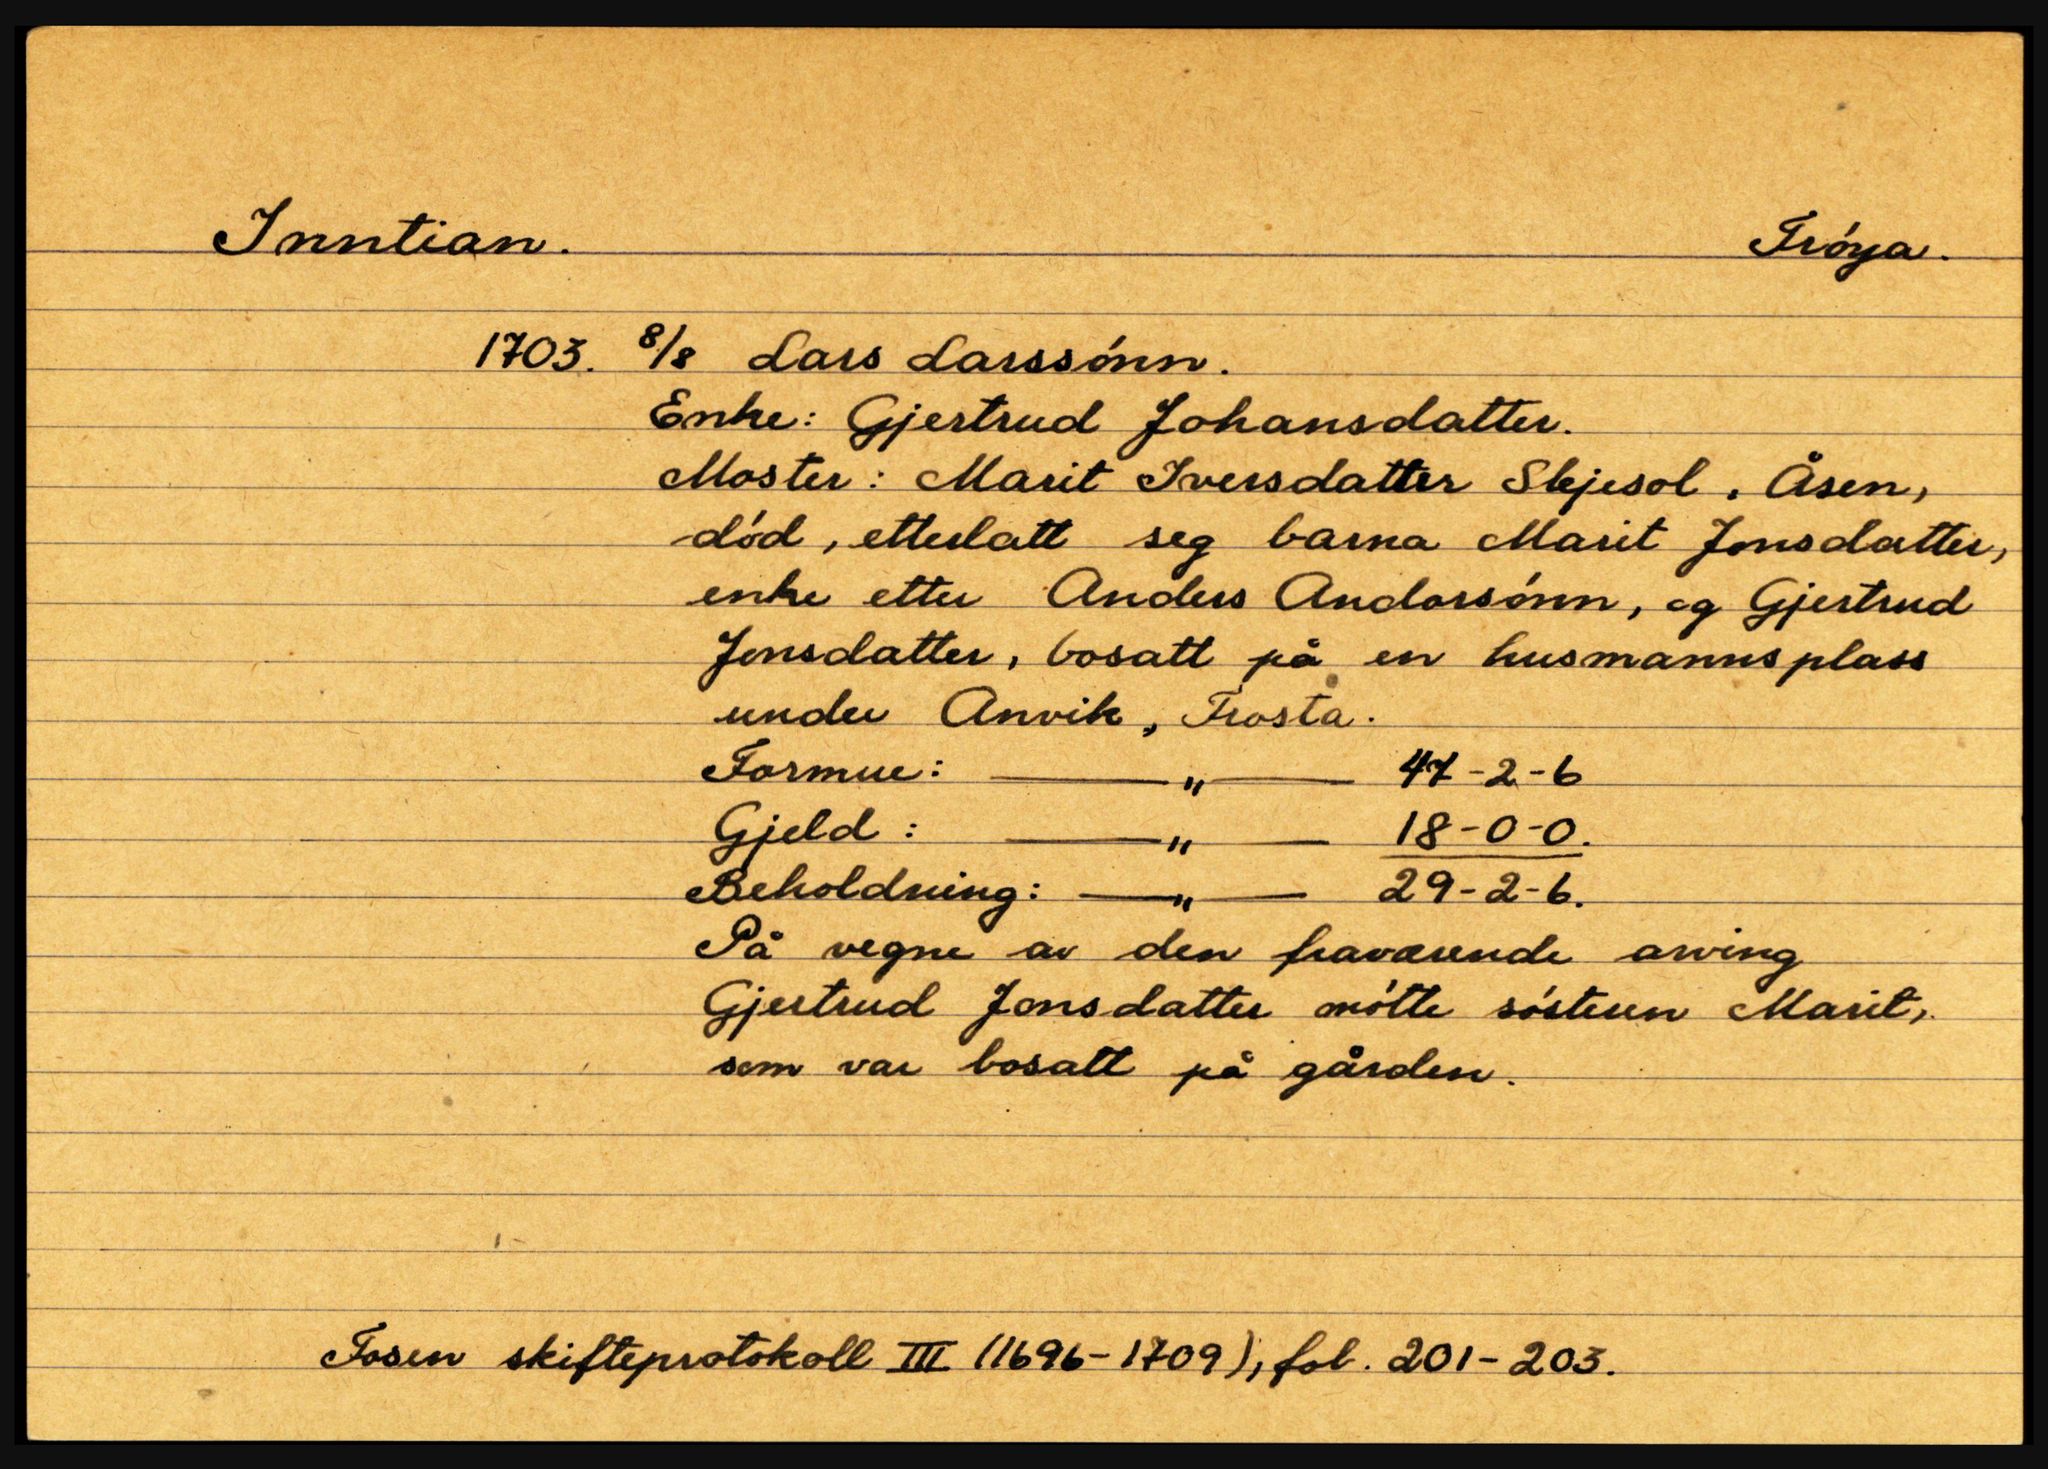 Inntian. Fróya.
1703. 8/8 Lars Larssónn.
Enke: Gjertrud Johansdatter.
Moster: Marit Iversdatter Skjesol, Åsen,
död, etterlatt seg barna Marit Jonsdatter,
enke etter Anders Andorsónn, og Gjertrud
Jonsdatter, bosatt på en husmannsplass
under Anvik, Frosta.
Formue: —— " —— 47-2-6
Gjeld: —— " —— 18-0-0.
Beholdning: —— " —— 29-2-6.
På vegne av den fraværende arving
Gjertrud Jonsdatter mótte sósteren Marit,
som var bosatt på gården.
Fosen skifteprotokoll III (1696-1709), fol. 201-203.